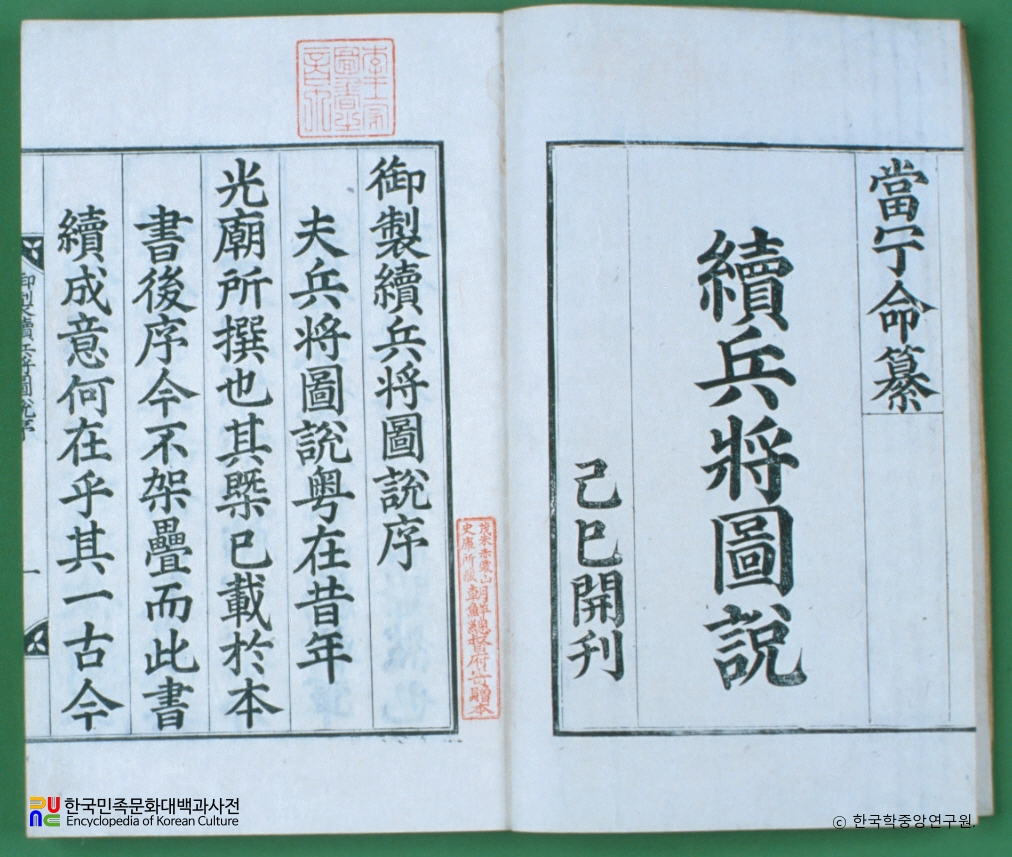 當宁命纂
續兵將圖說
己巳開刊
御製續兵将圖說序
夫兵将圖說粤在昔年
光廟所撰也其槩已載於本
書後序今不架疊而此書
續成意何在乎其一古今
御製續兵將圖說序
一
李王家
圖書之
章
茂朱赤裳山
史庫所藏
朝鮮總督府寄贈本
한국민족문화대백과사전
Encyclopedia of Korean Culture
ⓒ 한국학중앙연구원.